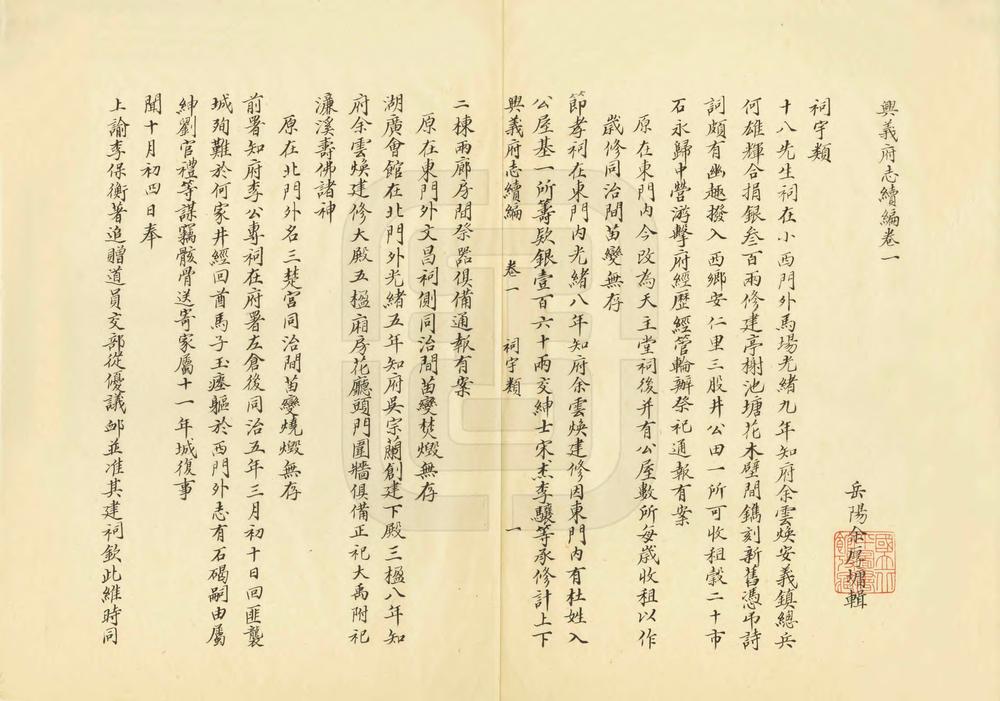 興義府志續編卷一
岳陽余厚墉輯
祠宇類
十八先生祠在小西門外馬場光緒九年知府余雲煥安義鎮總兵
何雄輝合捐銀叁百兩修建亭榭池塘花木壁間鐫刻新舊憑吊詩
詞頗有幽趣撥入西鄉安仁里三股井公田一所可收租穀二十市
石永歸中營游擊府經歷經管輪辦祭祀通報有案
原在東門內今改為天主堂祠後并有公屋數所每歲收租以作
歲修同治間苗變無存
節孝祠在東門內光緒八年知府余雲煥建修因東門內有杜姓入
公屋基一所籌款銀壹百六十兩交紳士宋杰李驤等承修計上下
興義府志續編 卷一 祠宇類 一
二棟兩廊房間祭器俱備通報有案
原在東門外文昌祠側同治間苗變焚燬無存
湖廣會館在北門外光緒五年知府吳宗蘭創建下殿三楹八年知
府余雲煥建修大殿五楹廂房花廳頭門圍牆俱備正祀大禹附祀
濂溪壽佛諸神
原在北門外名三楚宮同治間苗變燒燬無存
前署知府李公專祠在府署左倉後同治五年三月初十日回匪襲
城殉難於何家井經回酋馬子玉瘞軀於西門外志有石碣嗣由屬
紳劉官禮等謀竊骸骨送寄家屬十一年城復事
聞十月初四日奉
上諭李保衡著追贈道員交部從優議卹並准其建祠欽此維時同